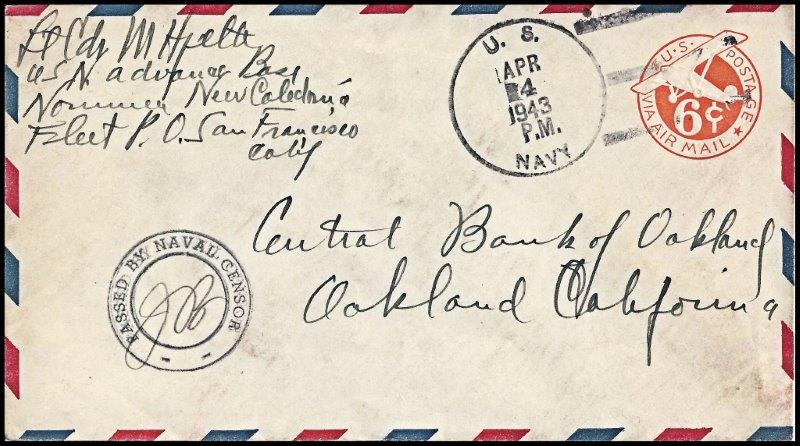 Lt Cdr M
U S N advance Base
Noumea New Caledonia
Fleet P. O. San Francisco
Calif
U. S.
APR
4
1943
P.M.
NAVY
U.S. POSTAGE
6¢
VIA AIR MAIL
Central Bank of Oakland
Oakland California
PASSED BY NAVAL CENSOR
JB